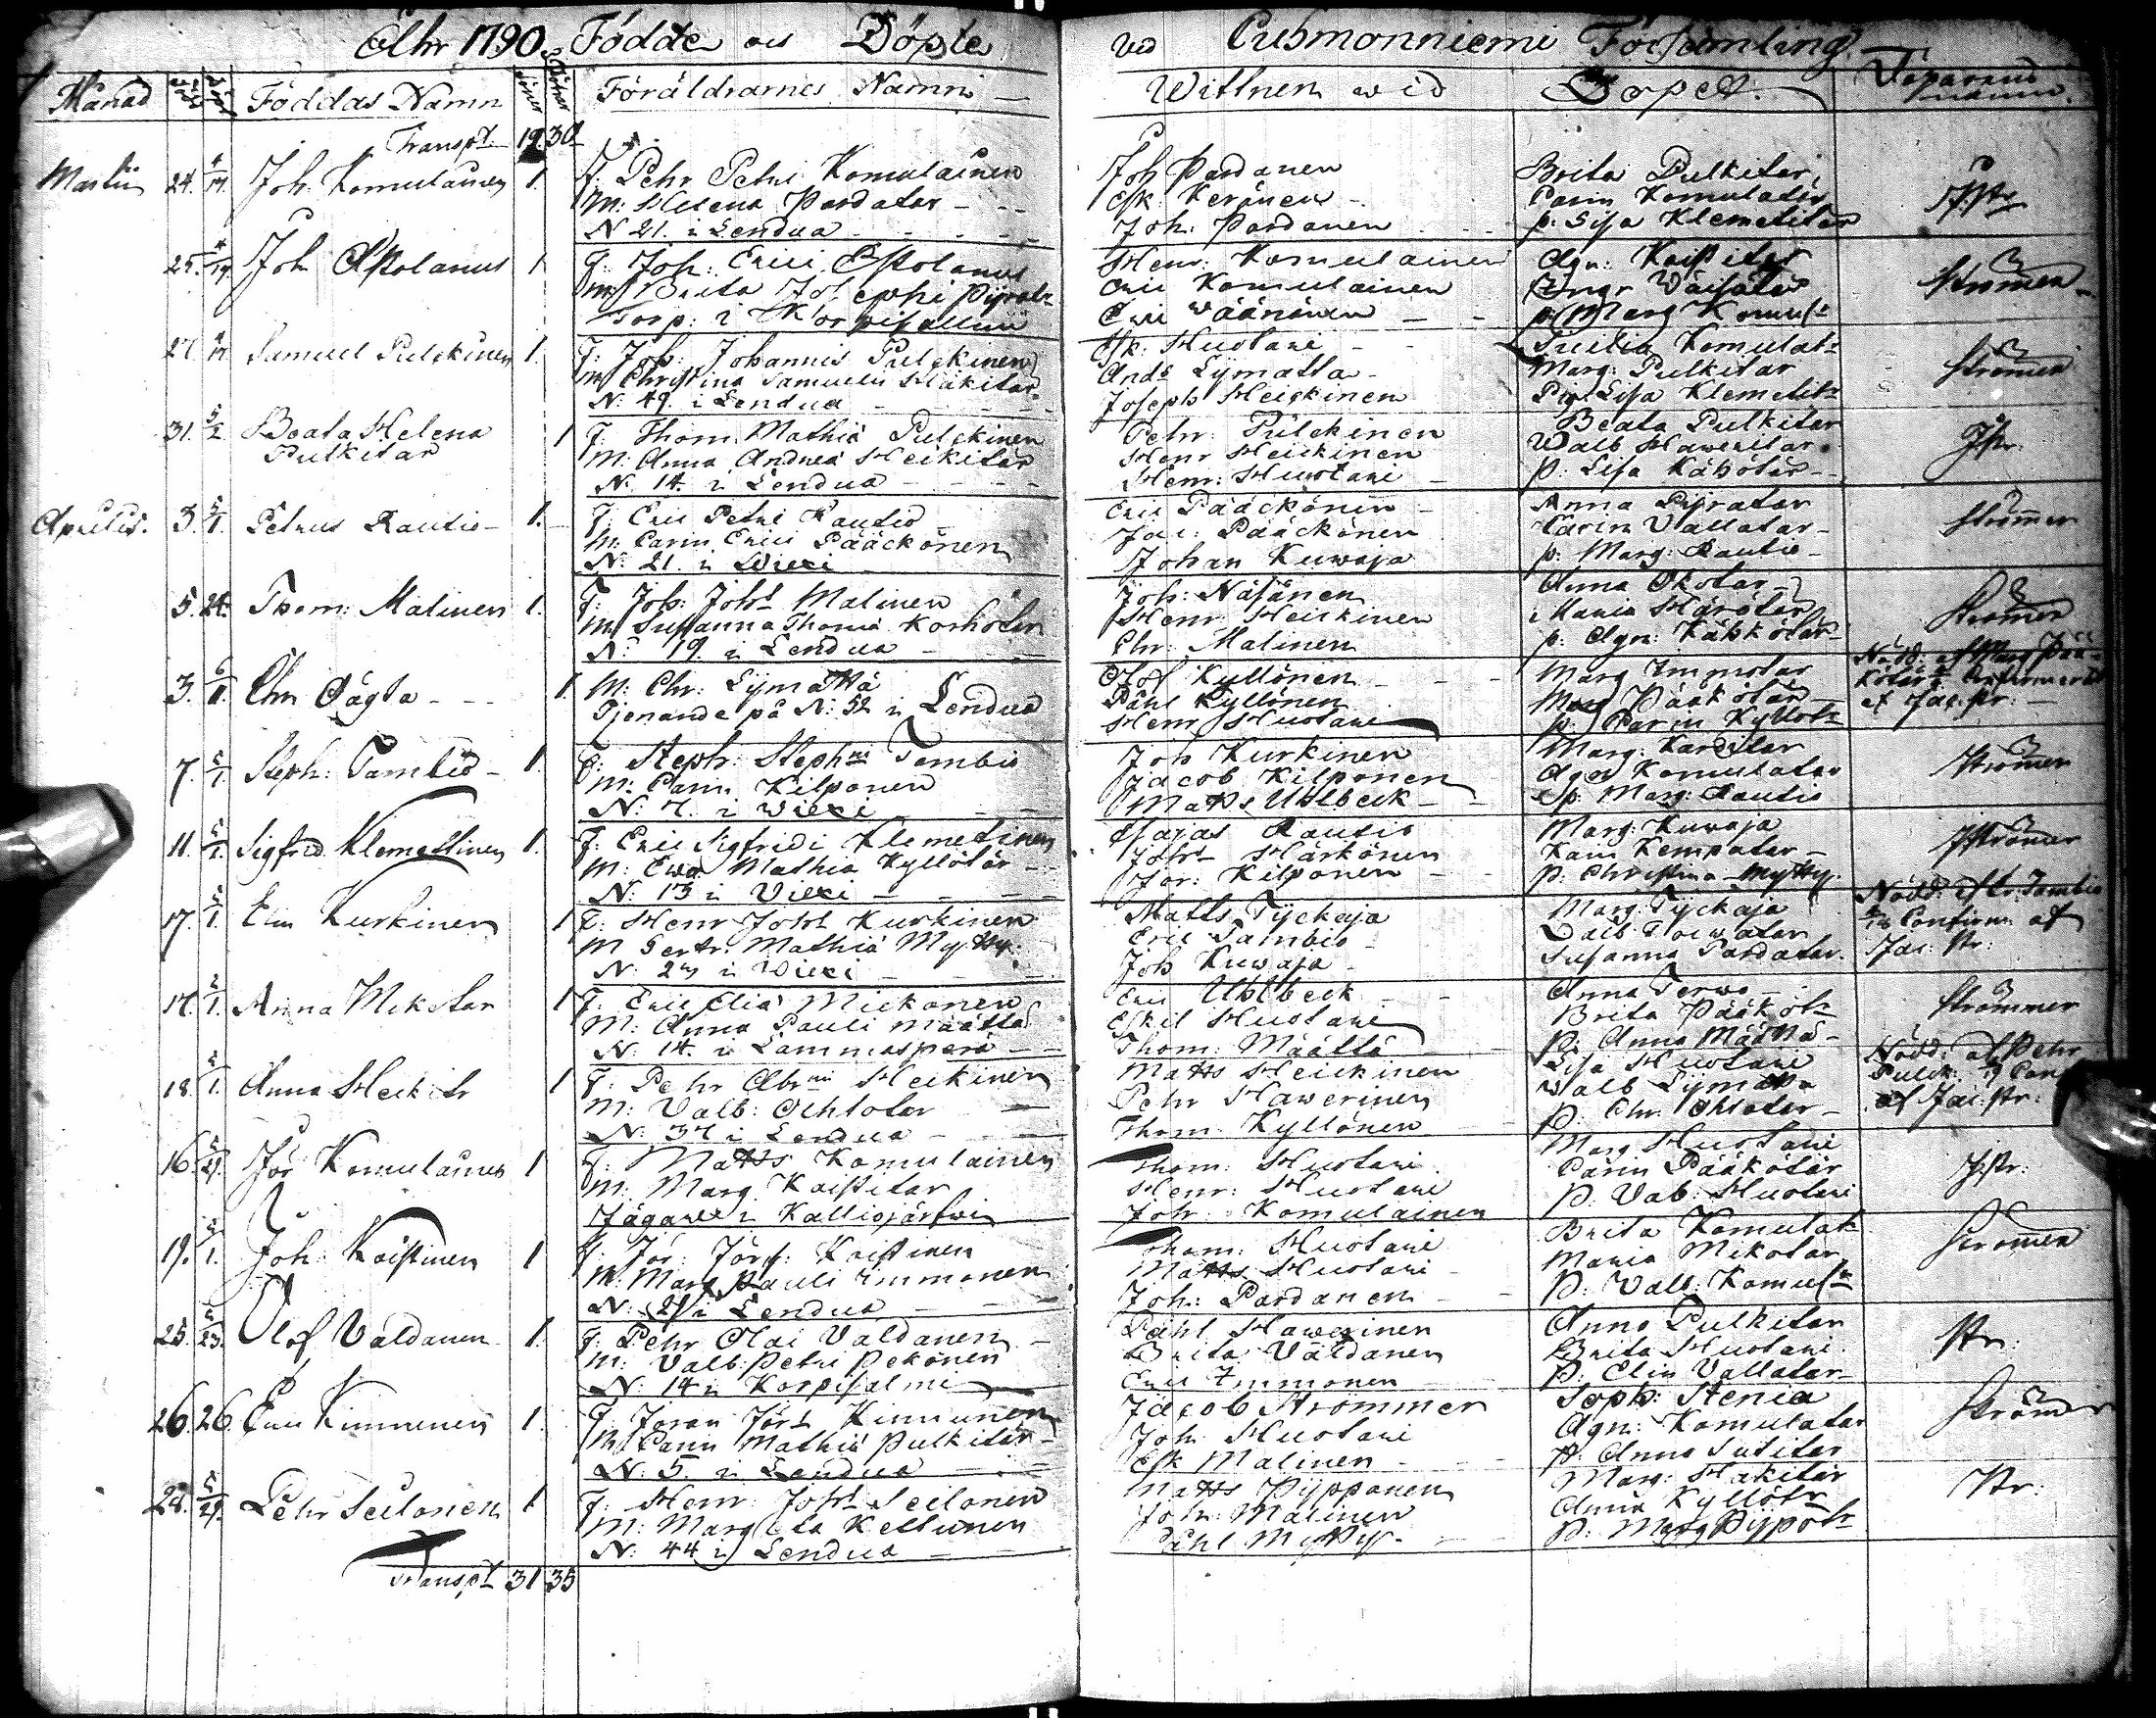 Åhr 1790 Födde och Döpte wid Cuhmonniemi Församling
Månad Föddas Namn Söner Döttrar Föräldrarnes Namn Wittnen wid Dopet Döparens namn
Transpt 19 30
Martii 24. 4/14 Joh. Komulainen 1.
F: Pehr Petri Komulainen
M: Helena Pardatar
N 21. i Lendua
Joh Pardanen
Esk: Keränen
Joh: Pardanen
Brita Pulkitar
Carin Komulatar
p: Lisa Klemetitar
25. 4/19 Joh Astolanus 1
F: Joh: Erici Astolanus
M: Brita Josephi
Torp: i Korpisalmi
Henr: Komulainen
Eric Komulainen
Eric Väänänen
Agn: Kaistitar
Ingr Väisätar
p: Marg Komulr
Strömmer
27. Samuel Pulckinen 1.
F: Joh: Johannis Pulckinen
M: Christina Samuelis Häkitar
N: 49. i Lendua
Esk: Huotari
Ands Lymatta
Joseph Heickinen
Komulatr
Marg: Pulkitar
Pig: Lisa Klemetitr
Strömmer
31. 5/2 Beata Helena
Pulkitar 1
F: Thom Mathiæ Pulckinen
M: Anna Andreæ Heikitar
N: 14. i Lendua
Pehr: Pulckinen
Henr Heickinen
Henr: Huotari
Beata Pulkitar
Walb Haweritar
p: Lisa Kähötär
J:Str:
Aprilis. 3. 5/1. Petrus Rautio 1.
F: Eric Petri Rautio
M: Carin Erici Pääckönen
N: 21. i Wiexi
Eric Pääckönen
Jac: Pääckönen
Johan Kuwaja
Anna
Carin Vallatar
p: Marg: Rautio
Strömmer
5. 24. Thom: Malinen 1.
F: Joh: Johs Malinen
M: Susanna Thomæ Korhotar
N: 19. i Lendua
Joh: Näsänen
Henr: Heickinen
Chr: Malinen
Anna
Maria Härötar
p: Agn: Kähkötär
Strömmer
3. 6/11. Chr Oägta 1.
M: Chr: Lymättä
Tjenande på N: 32 i Lendua
Olof Kyllönen
Påhl Kyllönen
Henr Huotari
Marg Immotar
Marg Pääkötar
p: Carin Kyllötr
Nödd: af Marg Pää-
kötar Confirmerad
af Jac: Str:
7. 5/1. Steph: Tambio 1.
F: Steph: Stephni Tambio
M: Carin Kilponen
N: 7. i Wiexi
Joh Kurkinen
Jacob Kilponen
Matts Uhlbeck
Marg: Karditar
Agn Komulatar
p: Marg: Rautio
Strömmer
11. 5/1. Sigfrid Klemettinen 1.
F: Eric Sigfridi Klemetinen
M: Ewa Mathiæ Kyllötär
N: 13 i Viexi
Esajas Rautio
Johs Härkönen
Jör: Kilponen
Marg: Kuwaja
Karin Kempatar
p: Christina Mytty
J Strömmer
17. 5/1. Elin Kurkinen 1
F: Henr Johs Kurkinen
M Gertr: Mathiæ Mytty
N: 2 i Wiexi
Matts Tyckaja
Eric Tambio
Joh Kuwaja
Marg: Tyckaja
Walb Toiwatar
Susanna Pardatar
Nödd: af Er: Tambio
Confirm: af
Jac: Str:
17. 5/1. Anna Mikotar 1
F: Eric Eliæ Mickonen
M: Anna Pauli Määttä
N: 14. i Lammasperä
Eric Uhlbeck
Eskil Huotari
Thom: Määttä
Anna Terwo
Brita Pääkötr
p: Anna Määttä
Strömmer
18. 5/1. Anna Heikitr 1
F: Pehr Abrmi Heikinen
M: Valb: Ochtotar
N: 37 i Lendua
Matts Heickinen
Pehr Hawerinen
Thom Kyllönen
Lisa Huotari
Walb Lymätta
p: Chr: Ohtotar
Nödd: af Pehr
Pulck:
af Jac: Str:
16. 5/29. Jör Komulainen 1
F: Matts Komulainen
M: Marg Kaistitar
Jägare i Kalliojärfwi
Thom: Huotari
Henr: Huotari
Joh: Komulainen
Marg Huotari
Carin Pääkötär
p: Valb: Huotari
J:Str:
19. 5/1. Joh: Kaistinen 1
F: Jör: Jörs: Kaistinen
M: Marg Pauli Immonen
N: 21 i Lendua
Thom: Huotari
Matts Huotari
Joh: Pardanen
Brita Komulatr
Maria Mikotar
p: Valb: Komulr
Strömmer
25. 5/23. Olof Valdanen 1.
F: Pehr Olai Valdanen
M: Valb: Petri Pekonen
N: 14 i Korpisalmi
Påhl Hawerinen
Brita Valdanen
Eric Immonen
Anna Pulkitar
Brita Huotari
p: Elin Vallatar
Str:
26. 26. Eric Kinnunen 1.
F: Jöran Jörs Kinnunen
M: Carin Mathiæ Pulkitar
N: 5. i Lendua
Jacob Strömmer
Joh Huotari
Esk Malinen
Soph: Stenia
Agn: Komulatar
p: Anna Sutitar
Strömer
22. 5/29. Pehr Seilonen 1
F: Henr: Johs Seilonen
M: Margeta Keltunen
N: 44 i Lendua
Matts Pyppönen
Joh: Malinen
Påhl Mytty
Marg: Hakitar
Anna Kyllötr
p: Marg Pyypötr
Str:
Transpt 31 35